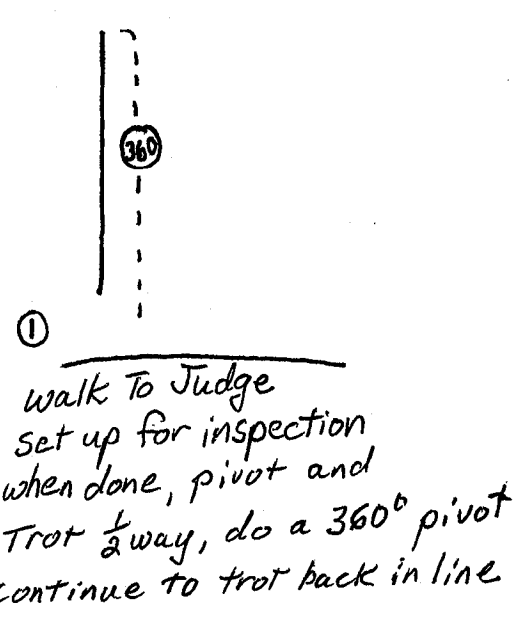 360
1
walk To Judge
set up for inspection
when done, pivot and
Trot 1/2 way, do a 360° pivot
continue to trot back in line